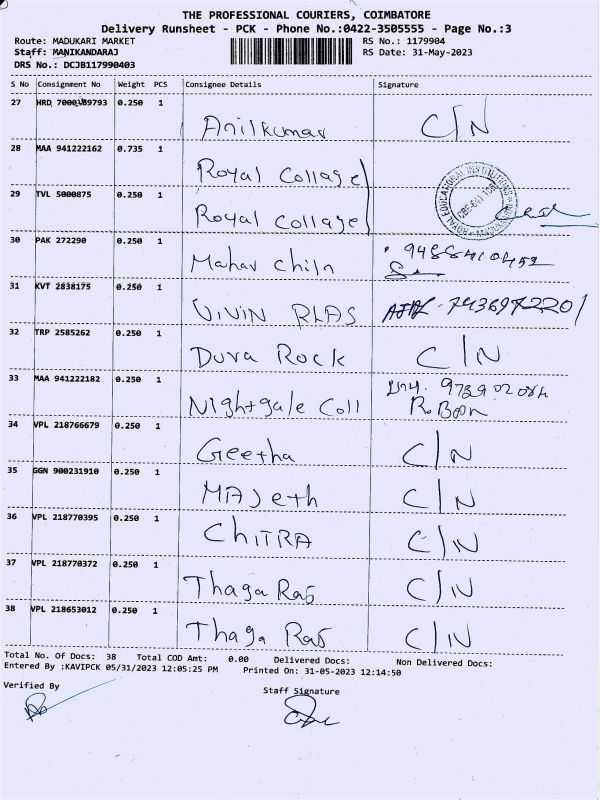 THE PROFESSIONAL COURIERS, COIMBATORE
Delivery Runsheet - PCK - Phone No.:0422-3505555 - Page No.:3
Route: MADUKARI MARKET RS No.: 1179904
Staff: MANIKANDARAJ RS Date: 31-May-2023
DRS No.: DCJB117990403
S No Consignment No Weight PCS Consignee Details Signature
27 HRD 7000189793 0.250 1 Anilkumar C/N
28 MAA 941222162 0.735 1 Royal Collage
29 TVL 5000875 0.250 1 Royal Collage
ROYAL EDUCATIONAL INSTITUTIONS
30 PAK 272290 0.250 1 Mahav Chiln 9488410452
31 KVT 2838175 0.250 1 VIVIN RLAS 7436972201
32 TRP 2585262 0.250 1 Duva Rock C/N
33 MAA 941222182 0.250 1 Nightgale Coll
34 VPL 218766679 0.250 1 Geetha C/N
35 GGN 900231910 0.250 1 MAJeth C/N
36 VPL 218770395 0.250 1 CHITRA C/N
37 VPL 218770372 0.250 1 Thaga Raj C/N
38 VPL 218653012 0.250 1 Thaga Raj C/N
Total No. Of Docs: 38 Total COD Amt: 0.00 Delivered Docs: Non Delivered Docs:
Entered By :KAVIPCK 05/31/2023 12:05:25 PM Printed On: 31-05-2023 12:14:50
Verified By Staff Signature